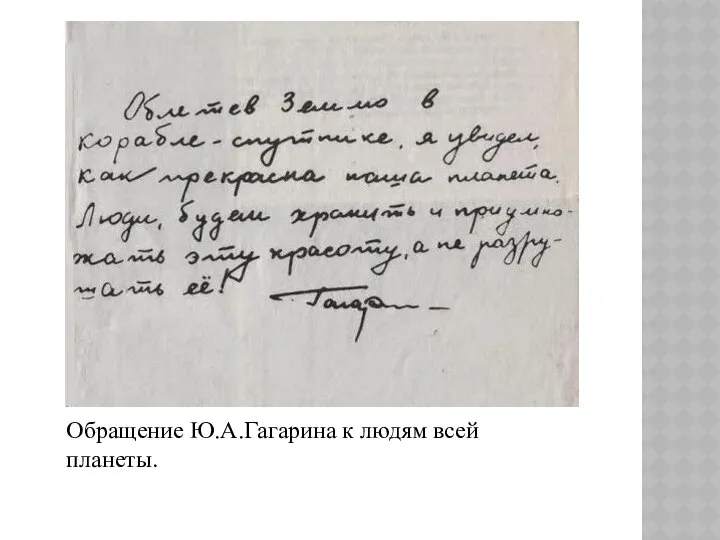 Облетев Землю в
корабле-спутнике, я увидел,
как прекрасна наша планета.
Люди, будем хранить и приумно-
жать эту красоту, а не разру-
шать её!
Гагарин
Обращение Ю.А.Гагарина к людям всей
планеты.